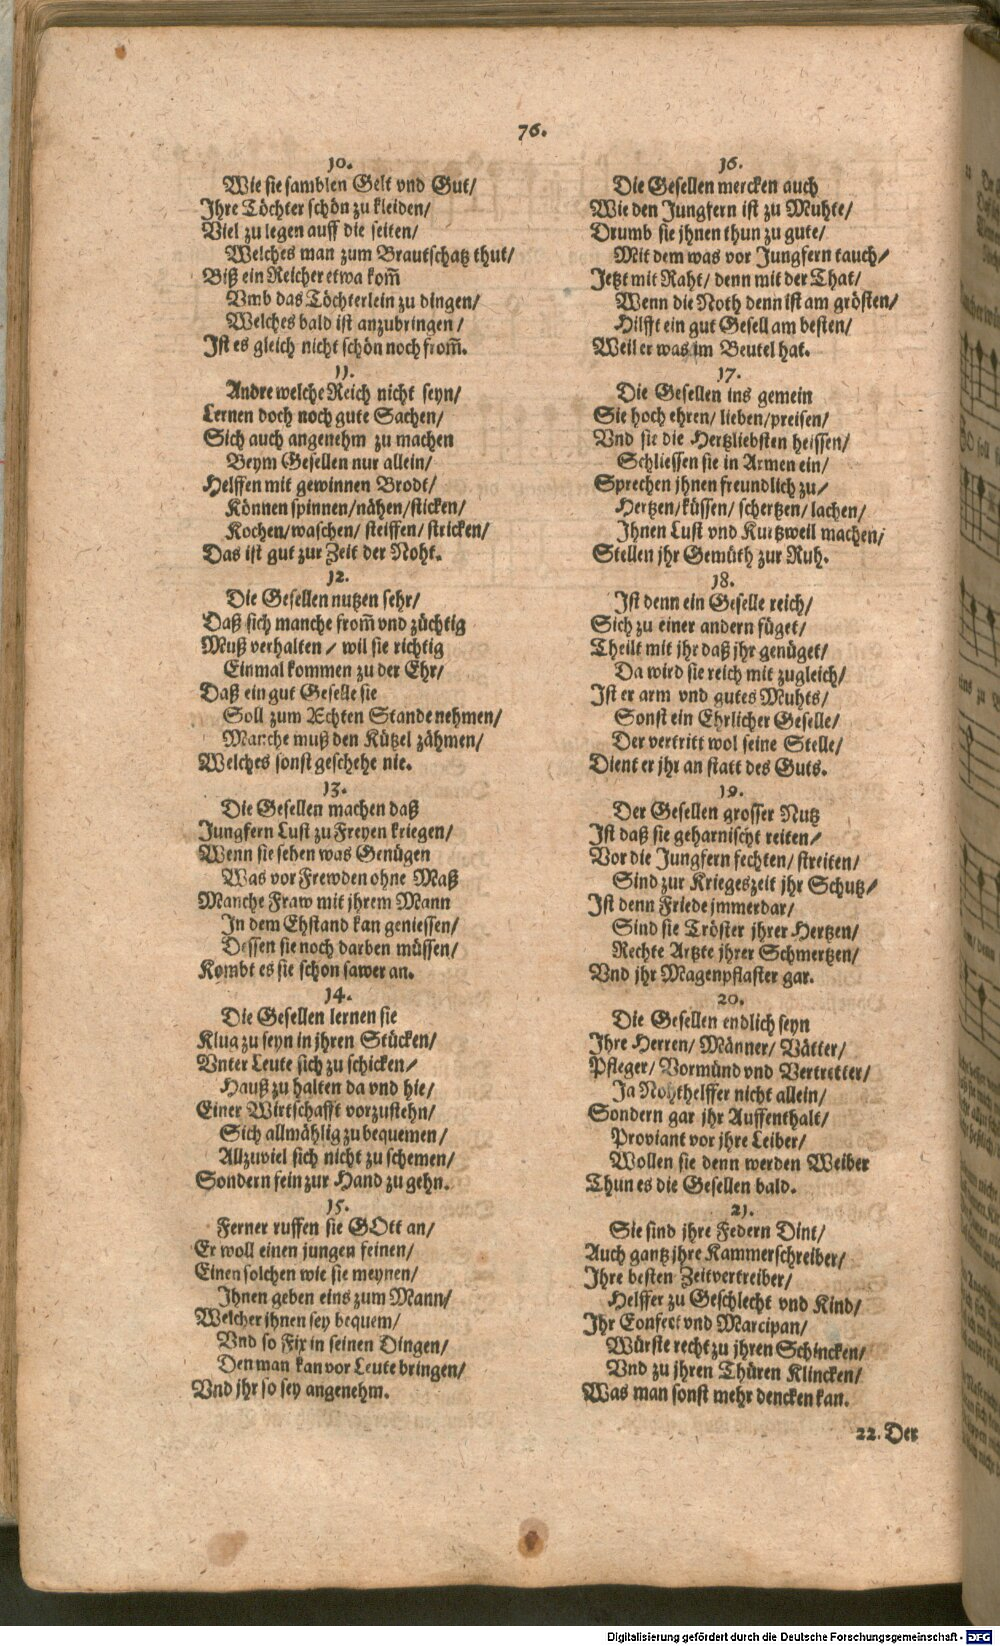 76.
10.
Wie sie samblen Gelt vnd Gut/
Ihre Töchter schön zu kleiden/
Viel zu legen auff die seiten/
Welches man zum Brautschatz thut/
Biß ein Reicher etwa kom̃
Vmb das Töchterlein zu dingen/
Welches bald ist anzubringen/
Ist es gleich nicht schön noch from̃.
11.
Andre welche Reich nicht seyn/
Lernen doch noch gute Sachen/
Sich auch angenehm zu machen
Beym Gesellen nur allein/
Helffen mit gewinnen Brodt/
Können spinnen/nähen/sticken/
Kochen/waschen/ steiffen/ stricken/
Das ist gut zur Zeit der Noht.
12.
Die Gesellen nutzen sehr/
Daß sich manche from̃ vnd züchtig
Muß verhalten/ wil sie richtig
Einmal kommen zu der Ehr/
Daß ein gut Geselle sie
Soll zum Echten Stande nehmen/
Manche muß den Kützel zähmen/
Welches sonst geschehe nie.
13.
Die Gesellen machen daß
Jungfern Lust zu Freyen kriegen/
Wenn sie sehen was Genügen
Was vor Frewden ohne Maß
Manche Fraw mit jhrem Mann
In dem Ehstand kan geniessen/
Dessen sie noch darben müssen/
Kombt es sie schon sawer an.
14.
Die Gesellen lernen sie
Klug zu seyn in jhren Stücken/
Vnter Leute sich zu schicken/
Hauß zu halten da vnd hie/
Einer Wirtschafft vorzustehn/
Sich allmählig zu bequemen/
Allzuviel sich nicht zu schemen/
Sondern fein zur Hand zu gehn.
15.
Ferner ruffen sie GOtt an/
Er woll einen jungen feinen/
Einen solchen wie sie meynen/
Ihnen geben eins zum Mann/
Welcher jhnen sey bequem/
Vnd so Fix in seinen Dingen/
Den man kan vor Leute bringen/
Vnd jhr so sey angenehm.
16.
Die Gesellen mercken auch
Wie den Jungfern ist zu Muhte/
Drumb sie jhnen thun zu gute/
Mit dem was vor Jungfern tauch/
Jetzt mit Raht/ denn mit der That/
Wenn die Noth denn ist am grösten/
Hilfft ein gut Gesell am besten/
Weil er was im Beutel hat.
17.
Die Gesellen ins gemein
Sie hoch ehren/ lieben/preisen/
Vnd sie die Hertzliebsten heissen/
Schliessen sie in Armen ein/
Sprechen jhnen freundlich zu/
Hertzen/küssen/ schertzen/ lachen/
Ihnen Lust vnd Kurtzweil machen/
Stellen jhr Gemüth zur Ruh.
18.
Ist denn ein Geselle reich/
Sich zu einer andern füget/
Theilt mit jhr daß jhr genüget/
Da wird sie reich mit zugleich/
Ist er arm vnd gutes Muhts/
Sonst ein Ehrlicher Geselle/
Der vertritt wol seine Stelle/
Dient er jhr an statt des Guts.
19.
Der Gesellen grosser Nutz
Ist daß sie geharnischt reiten/
Vor die Jungfern fechten/ streiten/
Sind zur Kriegeszeit jhr Schutz/
Ist denn Friede jmmerdar/
Sind sie Tröster jhrer Hertzen/
Rechte Artzte jhrer Schmertzen/
Vnd jhr Magenpflaster gar.
20.
Die Gesellen endlich seyn
Ihre Herren/ Männer/ Vätter/
Pfleger/ Vormünd vnd Vertretter/
Ja Nohthelffer nicht allein/
Sondern gar jhr Auffenthalt/
Proviant vor jhre Leiber/
Wollen sie denn werden Weiber
Thun es die Gesellen bald.
21.
Sie sind jhre Federn Dint/
Auch gantz jhre Kammerschreiber/
Ihre besten Zeitvertreiber/
Helffer zu Geschlecht vnd Kind/
Ihr Confect vnd Marcipan/
Würste recht zu jhren Schincken/
Vnd zu jhren Thüren Klincken/
Was man sonst mehr dencken kan.
22. Der
Digitalisierung gefördert durch die Deutsche Forschungsgemeinschaft - DFG